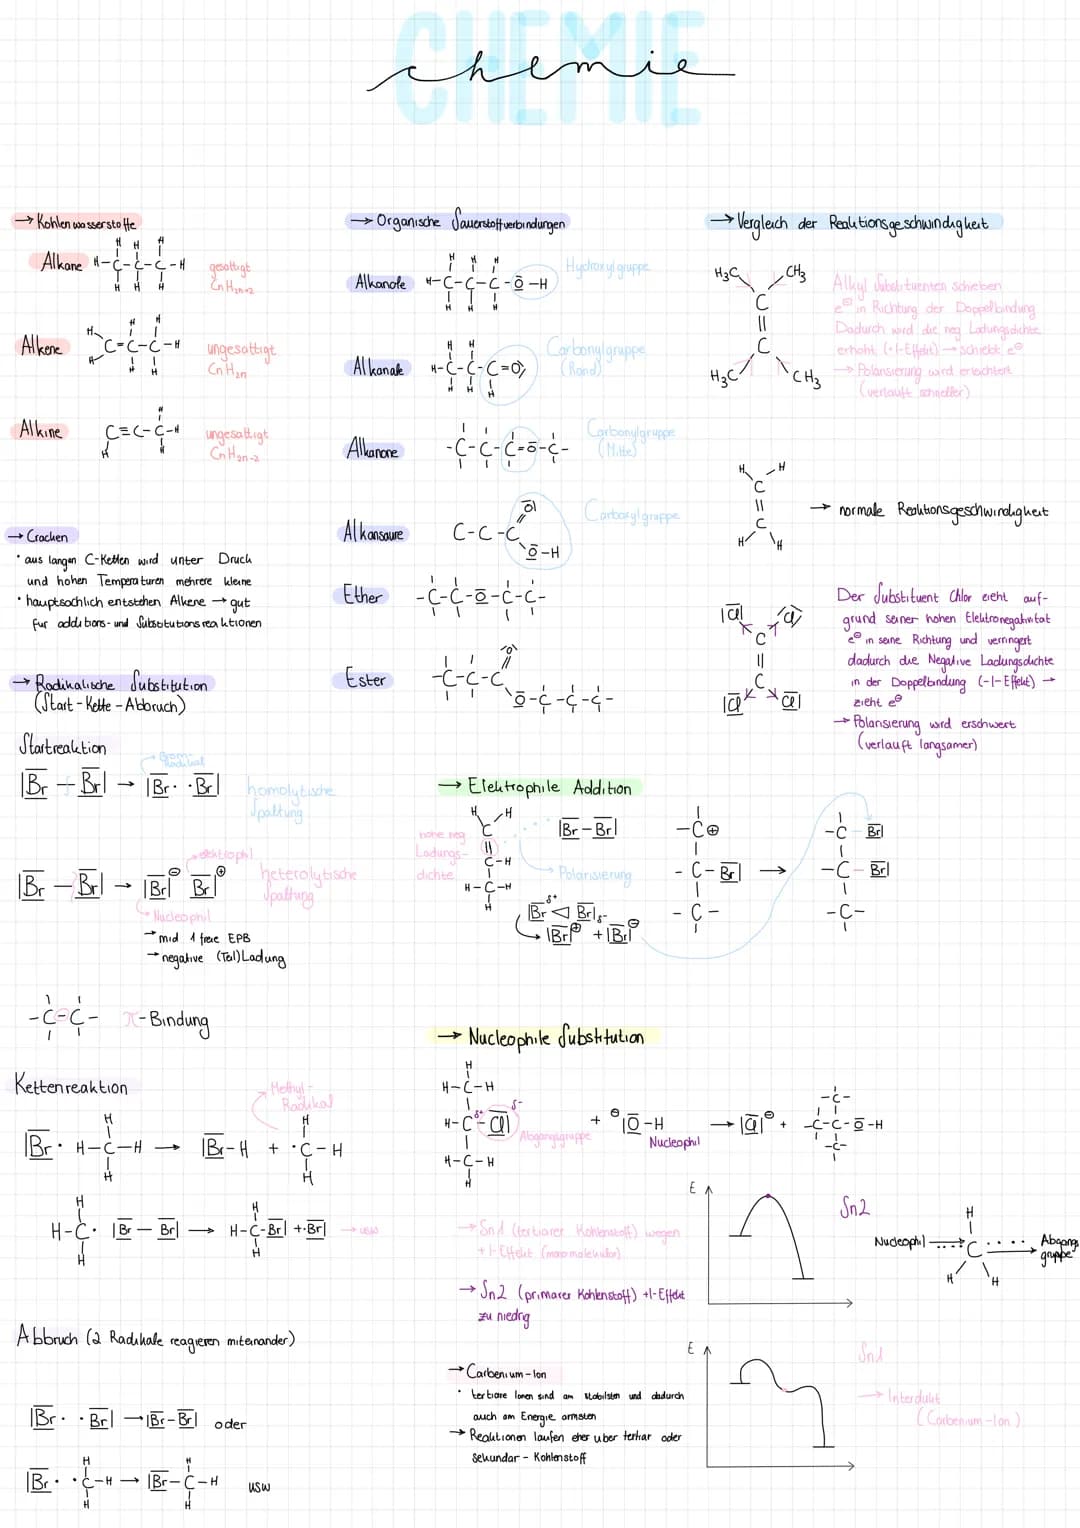 CHEMIE
chemie
→ Kohlenwasserstoffe
Alkane
gesättigt
CnH2n+2
Alkene
ungesättigt
CnH2n
Alkine
ungesättigt
CnH2n-2
→ Cracken
• aus langen C-Ketten wird unter Druck
und hohen Temperaturen mehrere kleine
• hauptsächlich entstehen Alkene → gut
für additions- und Substitutionsreaktionen
→ Radikalische Substitution
(Start-Kette-Abbruch)
Startreaktion
Brom-
Radikal
|Br — Br| → |Br· ·Br|
homolytische
Spaltung
elektrophil
|Br — Br| → |Br|⊖ Br|⊕
heterolytische
Spaltung
Nucleophil
→ mid 1 freie EPB
→ negative (Teil)Ladung
-C=C- π-Bindung
Kettenreaktion
Methyl-
Radikal
|Br· H-C-H → |Br-H + ·C-H
H-C· |Br — Br| → H-C-Br| + ·Br| → usw
Abbruch (2 Radikale reagieren miteinander)
|Br· ·Br| → |Br-Br| oder
|Br· ·C-H → |Br-C-H usw
→ Organische Sauerstoffverbindungen
Alkanole
H-C-C-C-O-H
Hydroxylgruppe
Alkanale
H-C-C-C=O
Carbonylgruppe
(Rand)
Alkanone
-C-C-C=O-C-
Carbonylgruppe
(Mitte)
Alkansäure
C-C-C
O
O-H
Carboxylgruppe
Ether
-C-C-O-C-C-
Ester
-C-C-C
O
O-C-C-C-
→ Elektrophile Addition
hohe neg
Ladungs-
dichte
|Br-Br|
→ Polarisierung
δ+
|Br ◁ Br| δ-
→ |Br|⊕ + |Br|⊖
-C⊕
-C-Br|
-C-
→
-C-Br|
-C-Br|
-C-
→ Nucleophile Substitution
H-C-H
H-C-Cl|
δ+
δ-
H-C-H
Abgangsgruppe
+ ⊖|O-H
Nucleophil
→ |Cl|⊖ + -C-C-O-H
→ Sn1 (tertiärer Kohlenstoff) wegen
+I-Effekt (monomolekular)
→ Sn2 (primärer Kohlenstoff) +I-Effekt
zu niedrig
→ Carbenium-Ion
• tertiäre Ionen sind am stabilsten und dadurch
auch am Energie ärmsten
→ Reaktionen laufen eher über tertiär oder
sekundär-Kohlenstoff
→ Vergleich der Reaktionsgeschwindigkeit
H3C
CH3
C
C
H3C
CH3
Alkyl Substituenten schieben
e⊖ in Richtung der Doppelbindung
Dadurch wird die neg Ladungsdichte
erhöht (+I-Effekt) → schiebt e⊖
→ Polarisierung wird erleichtert
(verläuft schneller)
H
H
C
C
H
H
→ normale Reaktionsgeschwindigkeit
|Cl
Cl
C
C
|Cl
Cl|
Der Substituent Chlor zieht auf-
grund seiner hohen Elektronegativität
e⊖ in seine Richtung und verringert
dadurch die Negative Ladungsdichte
in der Doppelbindung (-I-Effekt) →
zieht e⊖
→ Polarisierung wird erschwert
(verläuft langsamer)
E
Sn2
Nucleophil
H
C
H
H
Abgangs
gruppe
E
Sn1
→ Interdukt
(Carbenium-Ion)